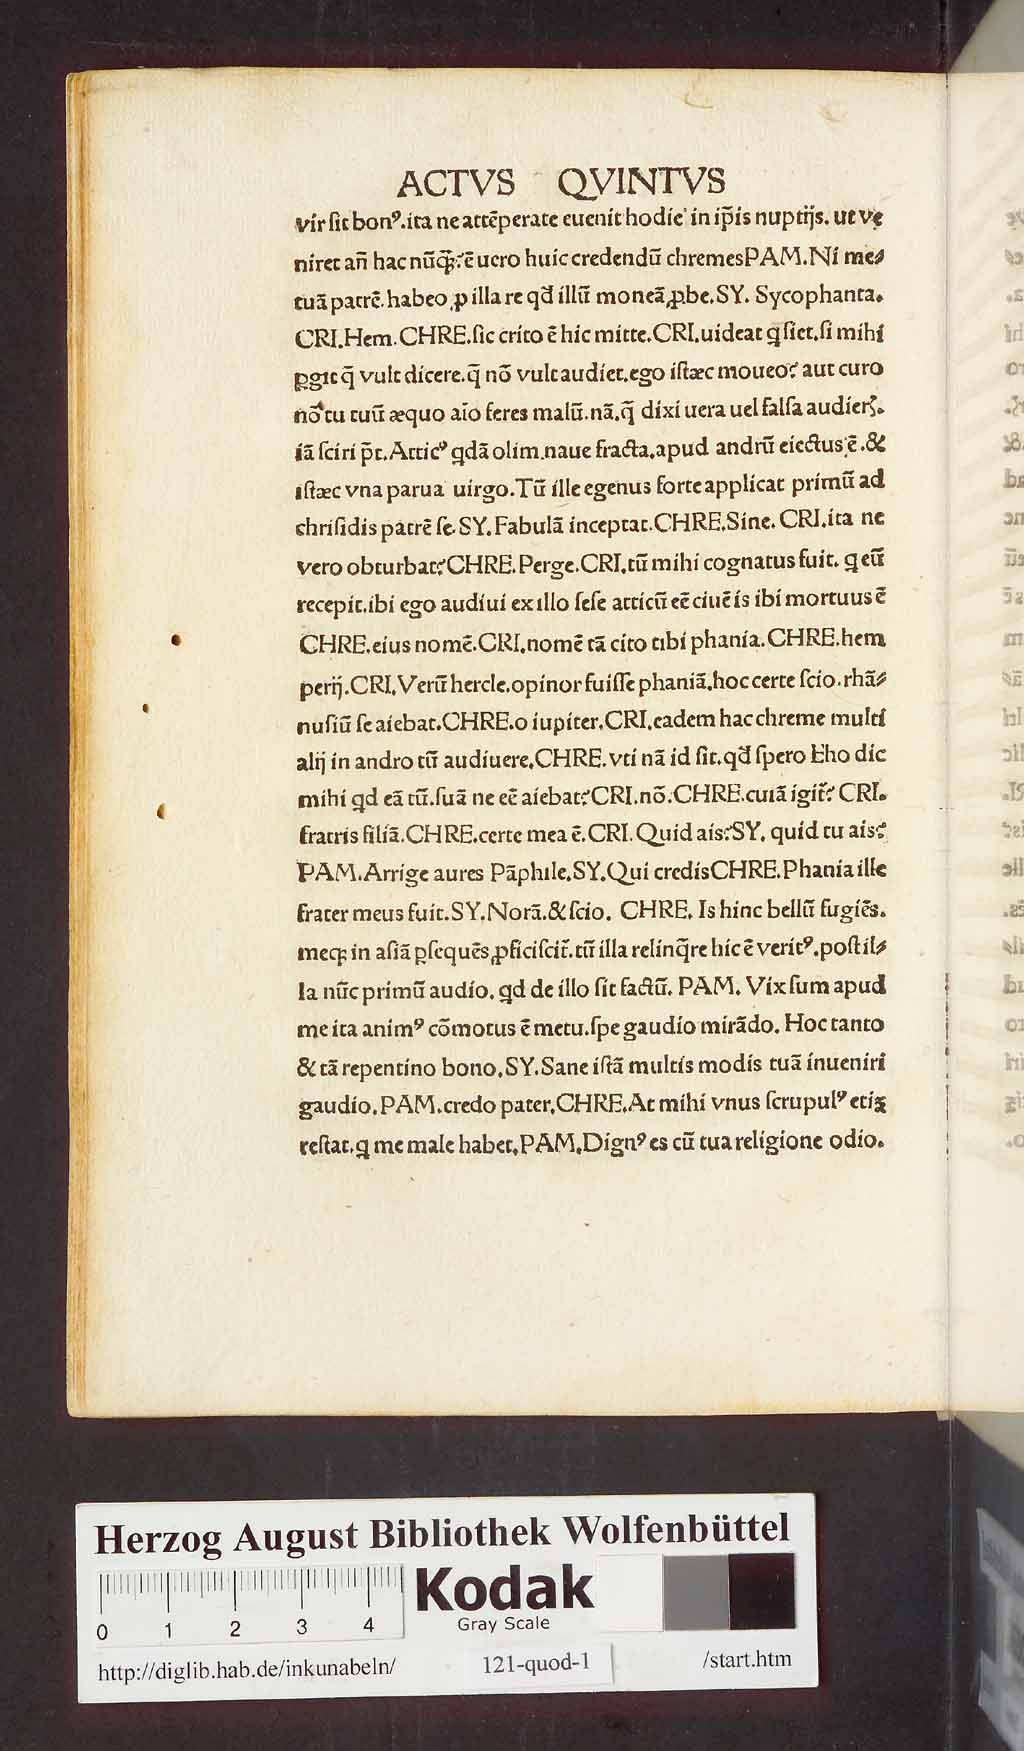 ACTVS QVINTVS
vir sit bonꝰ.ita ne attēperate euenit hodie in ip̄is nuptijs. ut ve
niret an̄ hac nūꝗ̄ꝫ?ē uero huic credendū chremesPAM.Ni me⸗
tuā patrē.habeo ꝓ illa re qđ illū moneā ꝓbe.SY. Sycophanta.
CRI.Hem.CHRE.sic crito ē hic mitte.CRI.uideat ꝗ siet.si mihi
ꝑgit q̄ vult dicere.q̄ nō vult audiet.ego istæc moueo? aut curo
nō tu tuū æquo aīo feres malū.nā.q̄ dixi uera uel falsa audierꝭ.
iā sciri p̄t.Atticꝰ ꝗdā olim.naue fracta.apud andrū eiectus ē.&
istæc vna parua uirgo.Tū ille egenus forte applicat primū ad
chrisidis patrē se.SY.Fabulā inceptat.CHRE.Sine. CRI.ita ne
vero obturbat?CHRE.Perge.CRI.tū mihi cognatus fuit. ꝗ eū
recepit.ibi ego audiui ex illo sese atticū eē ciuē is ibi mortuus ē
CHRE.eius nomē.CRI.nomē tā cito tibi phania.CHRE.hem
perij.CRI.Verū hercle.opinor fuisse phaniā.hoc certe scio.rhā⸗
nusiū se aiebat.CHRE.o iupiter.CRI.eadem hac chreme multi
alij in andro tū audiuere.CHRE.vti nā id sit.qđ spero Eho dic
mihi ꝗd eā tū.suā ne eē aiebat?CRI.nō.CHRE.cuiā igit̄? CRI.
fratris filiā.CHRE.certe mea ē.CRI.Quid ais?SY. quid tu ais?
PAM.Arrige aures Pāphile.SY.Qui credisCHRE.Phania ille
frater meus fuit.SY.Norā.& scio. CHRE. Is hinc bellū fugiēs.
meqꝫ in asiā ꝑsequēs ꝓficiscit̄.tū illa relinq̄re hic ē veritꝰ.post il⸗
la nūc primū audio. ꝗd de illo sit factū. PAM. Vix sum apud
me ita animꝰ cōmotus ē metu.spe gaudio mirādo. Hoc tanto
& tā repentino bono.SY.Sane istā multis modis tuā inueniri
gaudio.PAM.credo pater.CHRE.At mihi vnus scrupulꝰ etiꝫ
restat.ꝗ me male habet.PAM.Dignꝰ es cū tua religione odio.
Herzog August Bibliothek Wolfenbüttel
Kodak
Gray Scale
0 1 2 3 4
http://diglib.hab.de/inkunabeln/ 121-quod-1 /start.htm